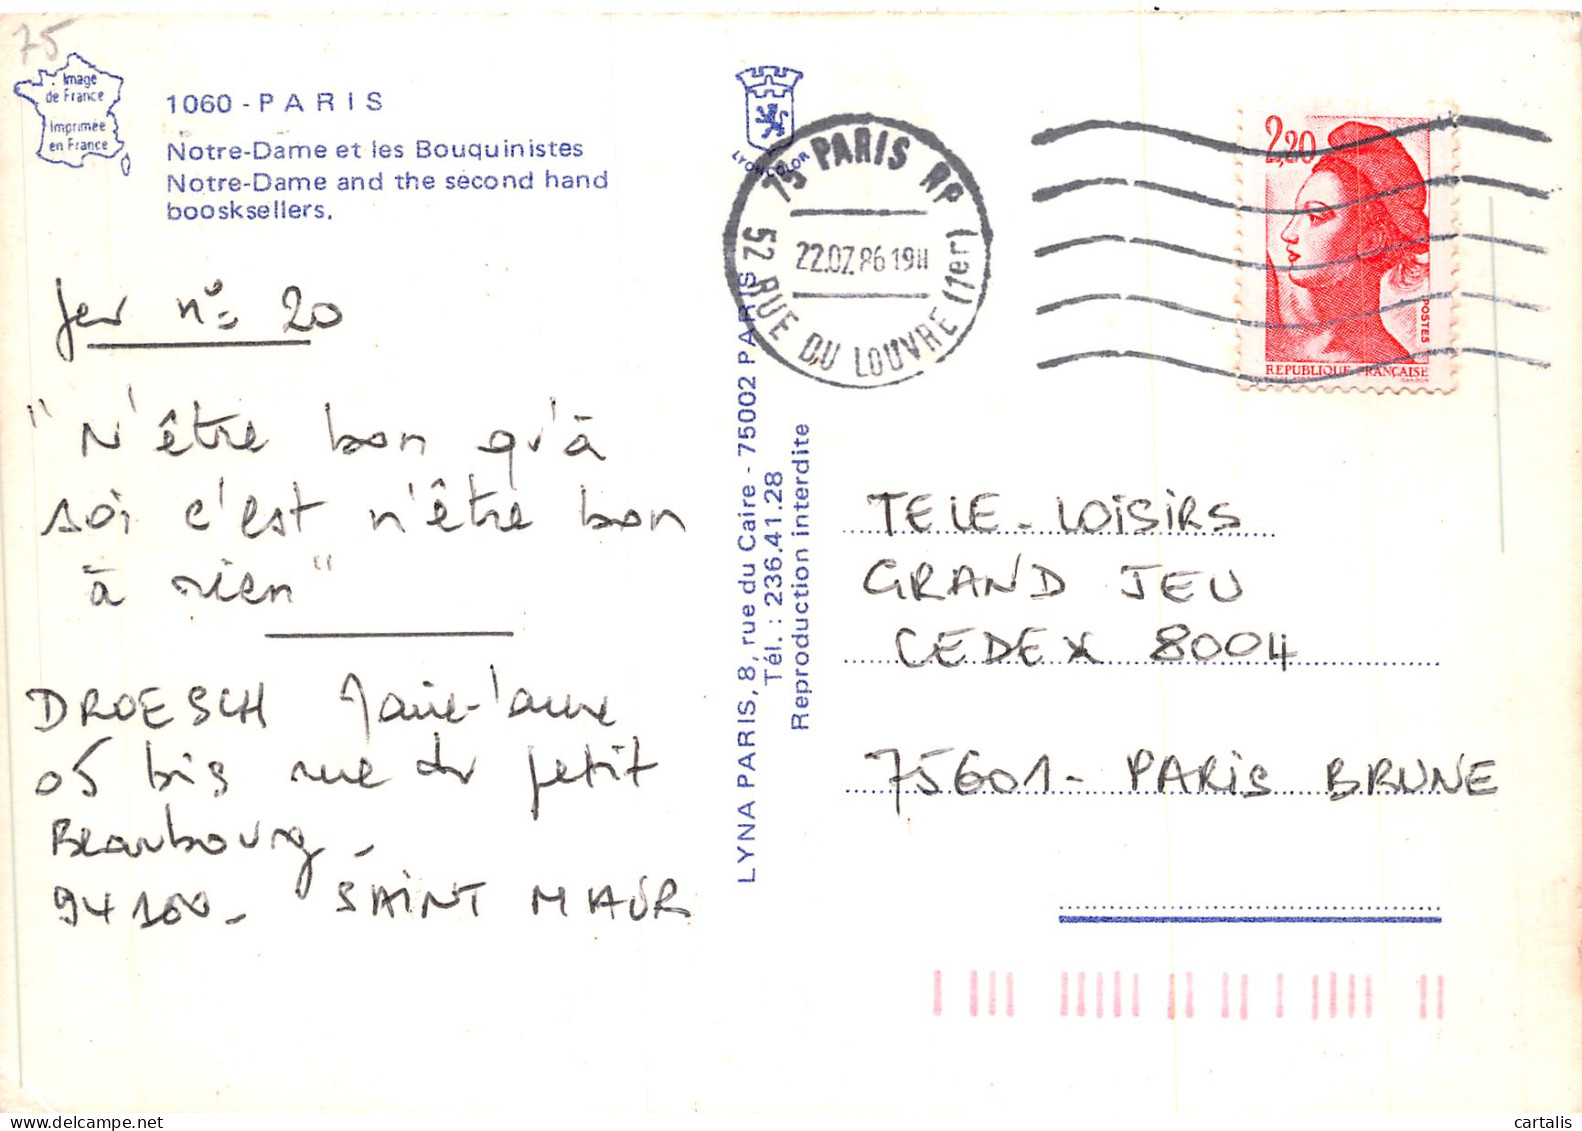 75
Image
de France
Imprimée
en France
1060 - PARIS
Notre-Dame et les Bouquinistes
Notre-Dame and the second hand
boosksellers.
Jeu n° = 20
"N'être bon qu'à
soi c'est n'être bon
à rien"
DROESCH Marie-Laure
05 bis rue du petit
Beaubourg -
94100 - SAINT MAUR
LYNA PARIS, 8, rue du Caire - 75002 PARIS
Tél. : 236.41.28
Reproduction interdite
LYONCOLOR
75 PARIS RP
22.07.86 19H
52 RUE DU LOUVRE (1er)
2,20
POSTES
REPUBLIQUE FRANÇAISE
GANDON
TELE-LOISIRS
GRAND JEU
CEDEX 8004
75601 - PARIS BRUNE
cartalis